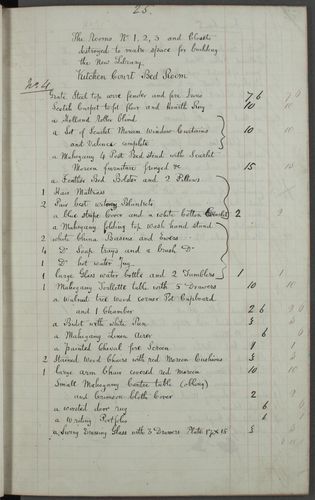 25.
The Rooms No 1, 2, 3 and Closets
destroyed to make space for building
the New Library.
Kitchen Court Bed Room
No 4
Grate Steel top wire fender and fire Irons 7 6
Scotch Carpet to fit floor and Hearth Rug 10
a Holland Roller Blind
a Set of Scarlet Moreen Window Curtains 10
and Valence complete
a Mahogany 4 Post Bed stead with Scarlet
Moreen furniture fringed &c 15
a Feather Bed Bolster and 2 Pillows
1 Hair Mattress
2 Pair best Blankets
a blue stripe Cover and a white Cotton 2
a Mahogany folding top wash hand stand
2 white China Basins and Ewers
4 Do Soap trays and a brush Do
1 Do hot water Jug
1 large Glass water bottle and 2 Tumblers 1
1 Mahogany Toillette table with 5 Drawers 10
a Walnut tree wood corner Pot Cupboard
and 1 Chamber 2 6
a Bidet with white Pan 5
a Mahogany Linen Airer 6
a painted Cheval fire Screen 1
2 Stained Wood Chairs with red Moreen Cushions 5
1 large arm Chair covered red Moreen 10
Small Mahogany Centre table (oblong)
and Crimson Cloth Cover 2
a worsted door rug 6
a Writing Portfolio 6
a Swing Dressing Glass with 3 Drawers Plate 17 x 15 5